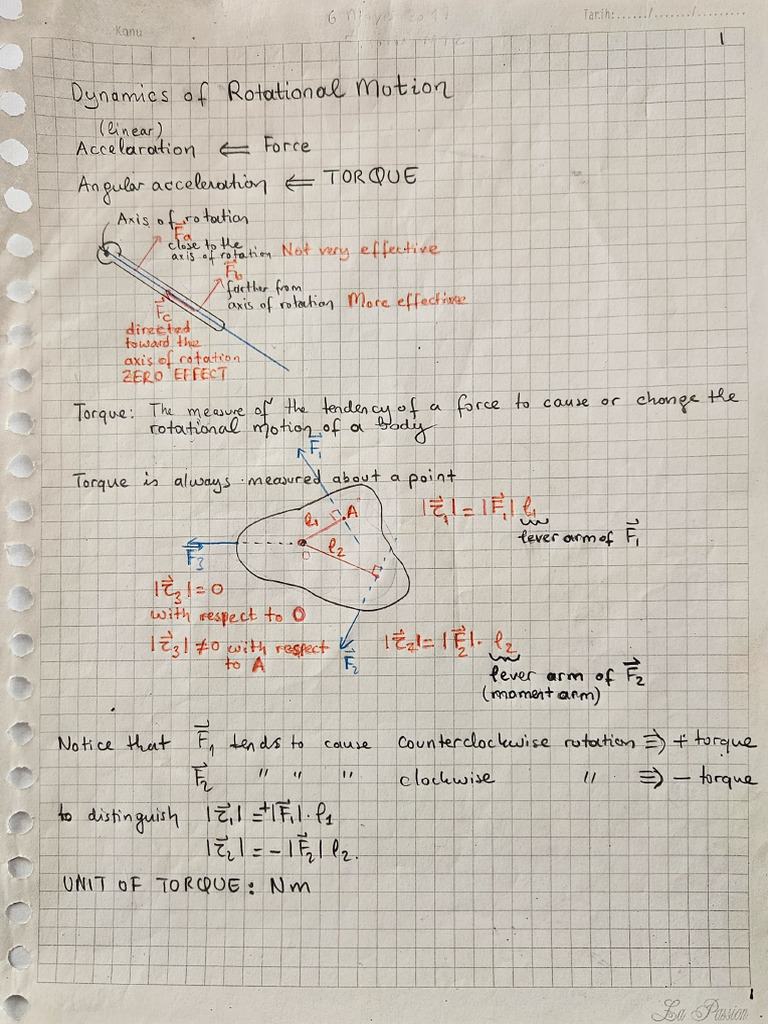 Konu
Tarih:....../......./.........
1
Dynamics of Rotational Motion
(linear)
Accelaration ⇐ Force
Angular acceleration ⇐ TORQUE
Axis of rotation
F⃗a
close to the
axis of rotation Not very effective
F⃗b
farther from
axis of rotation More effective
F⃗c
directed
toward the
axis of rotation
ZERO EFFECT
Torque: The measure of the tendency of a force to cause or change the
rotational motion of a body
F⃗₁
Torque is always measured about a point
|τ⃗₁| = |F⃗₁| ℓ₁
lever arm of F⃗₁
ℓ₁ A
O ℓ₂
F⃗₃
|τ⃗₃| = 0
with respect to O
|τ⃗₃| ≠ 0 with respect
to A
F⃗₂
|τ⃗₂| = |F⃗₂| · ℓ₂
lever arm of F⃗₂
(moment arm)
Notice that F⃗₁ tends to cause counterclockwise rotation ⇒ + torque
F⃗₂ " " " clockwise " ⇒ − torque
to distinguish |τ⃗₁| = +|F⃗₁| · ℓ₁
|τ⃗₂| = − |F⃗₂| ℓ₂.
UNIT OF TORQUE: Nm
1
La Passion